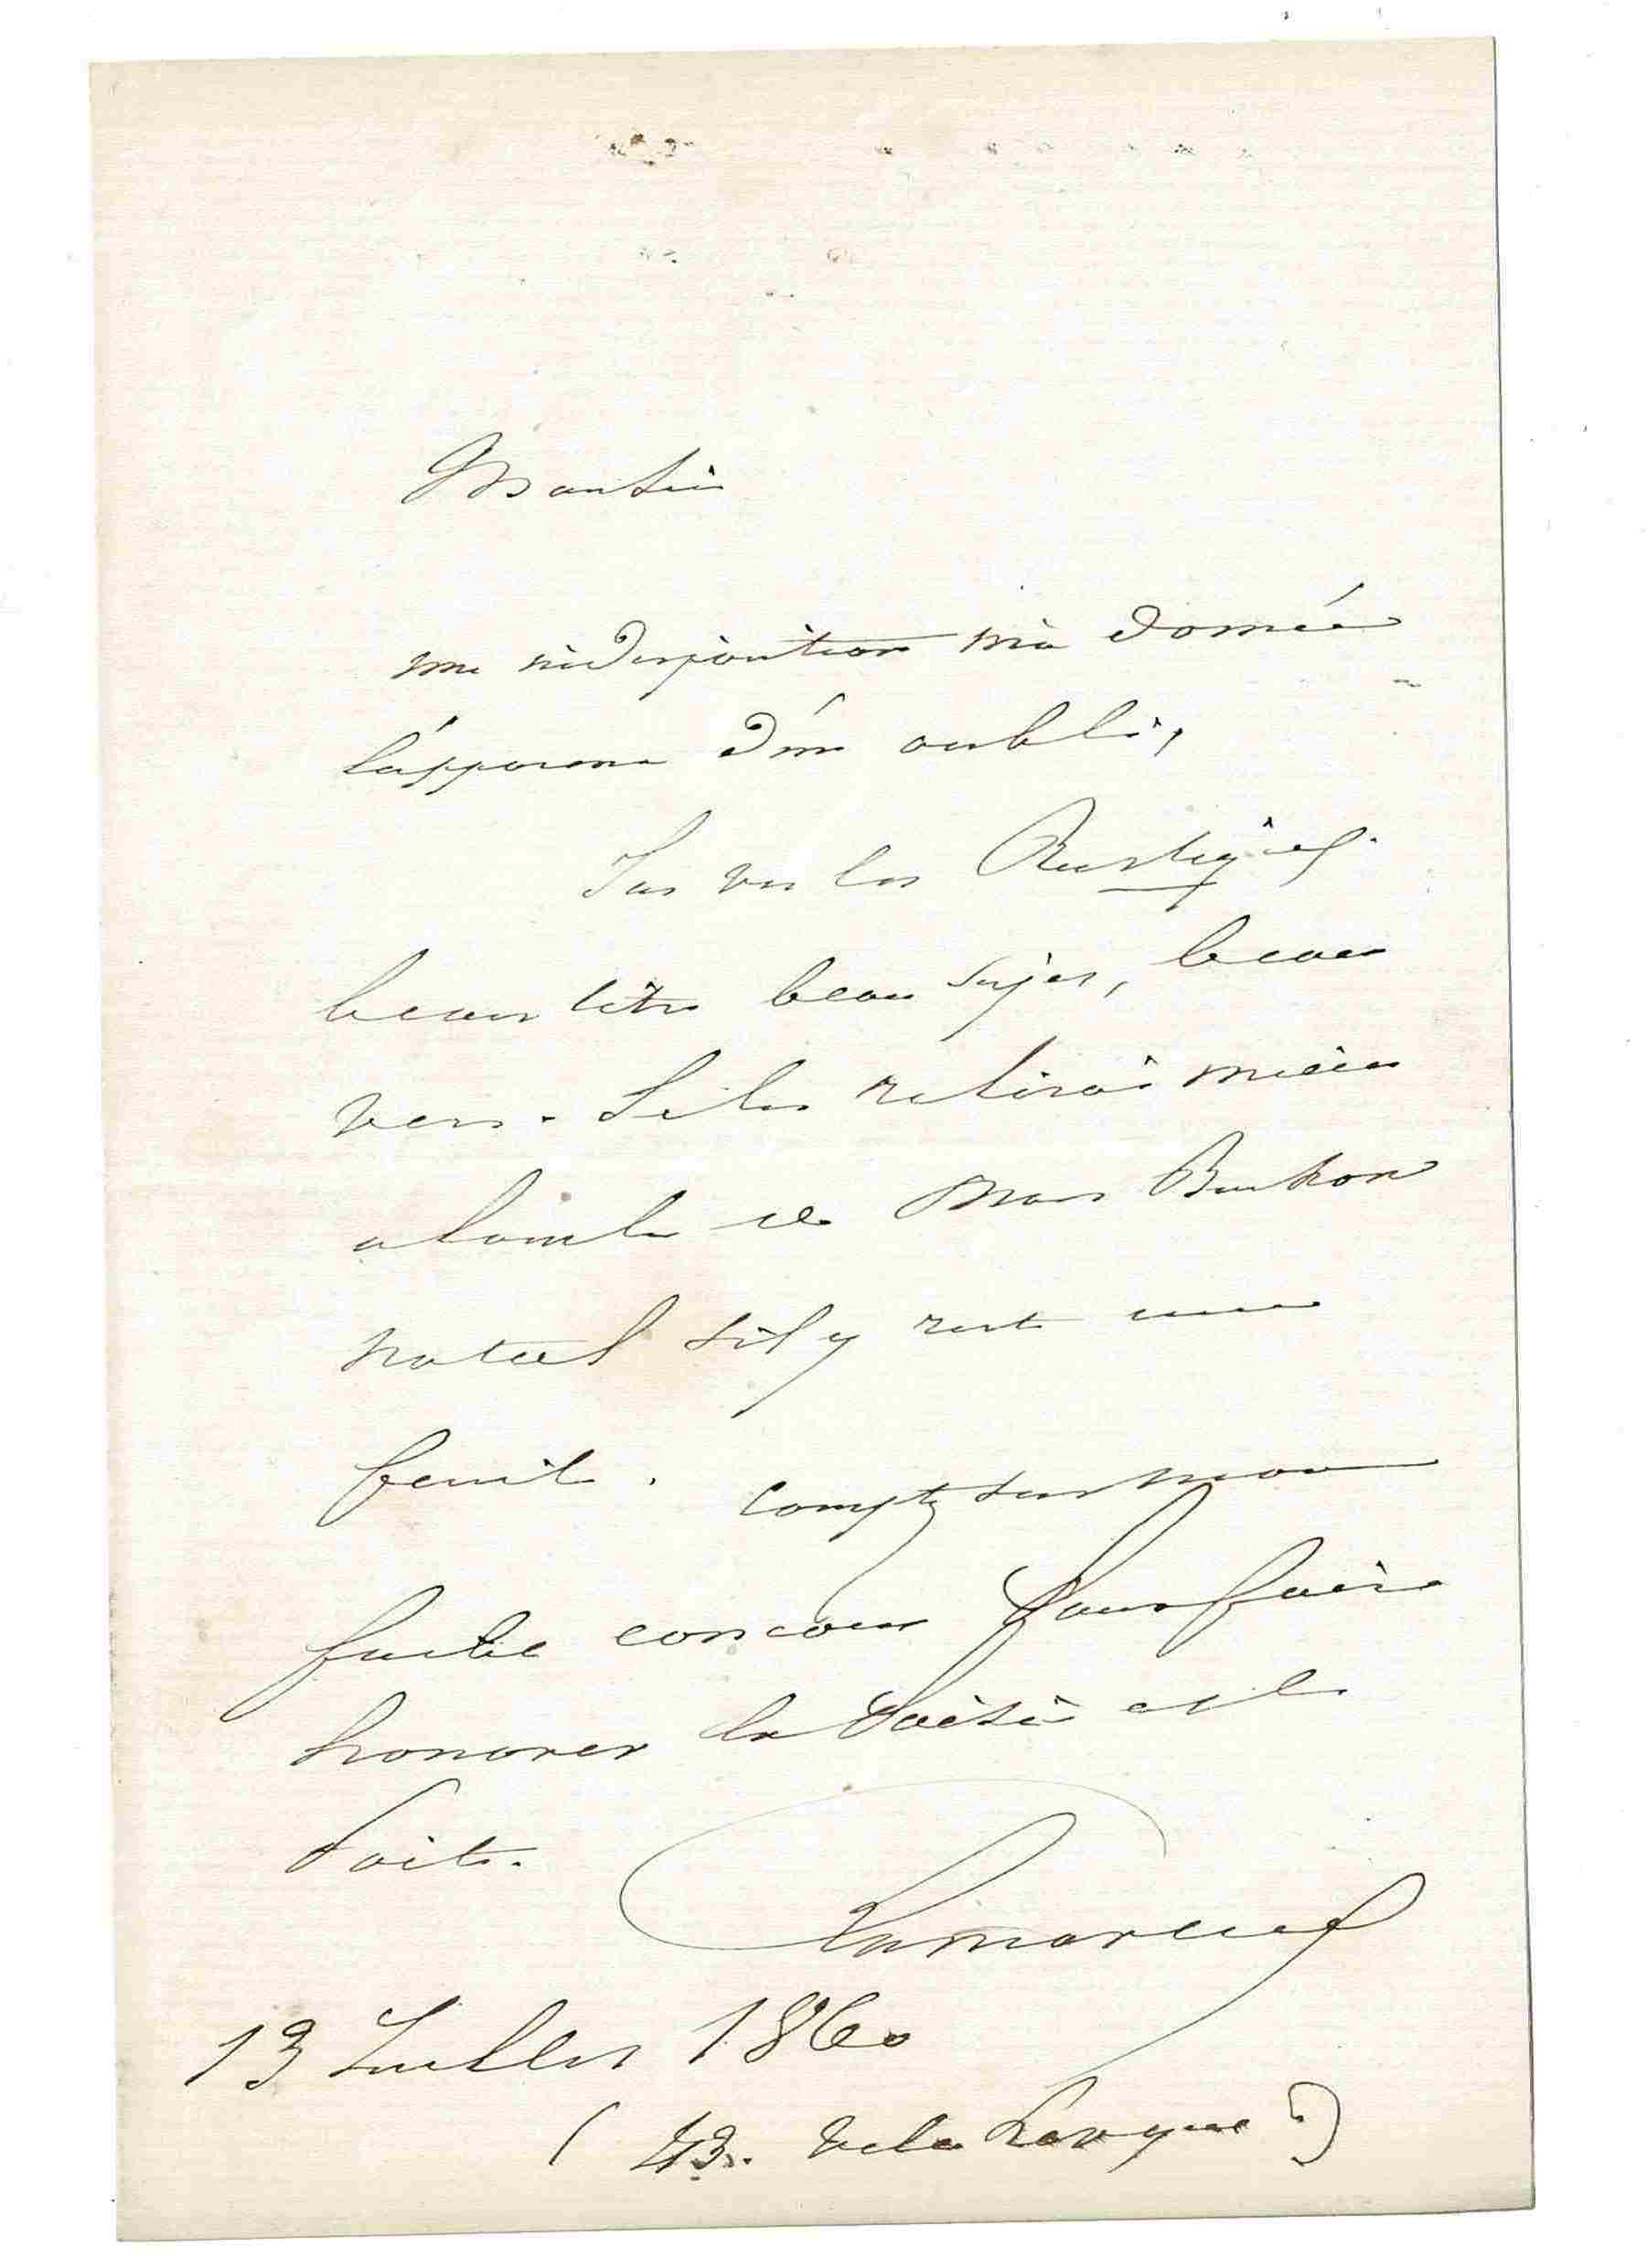 Monsieur
une indisposition m'a donné
l'apparence d'un oubli,
J'ai vu les Rustiques
beau titre beau sujet, beaux
vers. Je les relirai mieux
a l'ombre de mon Buisson
natal s'il y reste une
feuille. comptez sur mon
faible concours pour faire
honorer la Poësie et le
Poëte.
Lamartine
13 Juillet 1860
( 43. Ville Leveque )